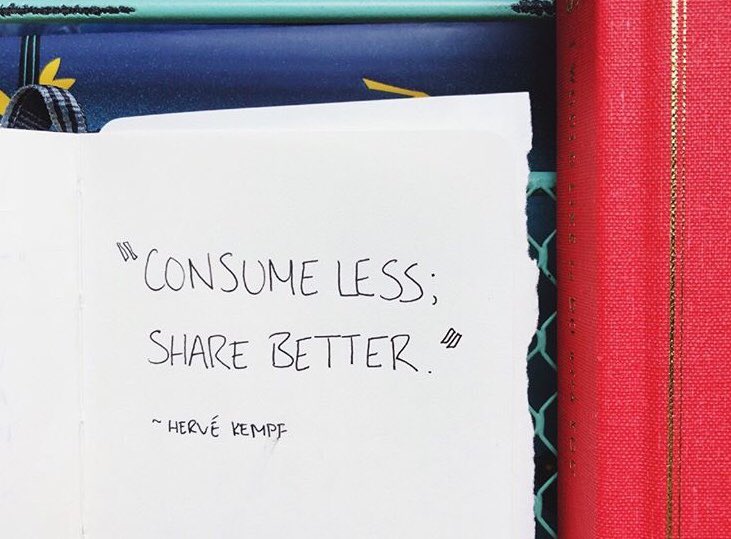 "CONSUME LESS;
SHARE BETTER."
~ HERVÉ KEMPF